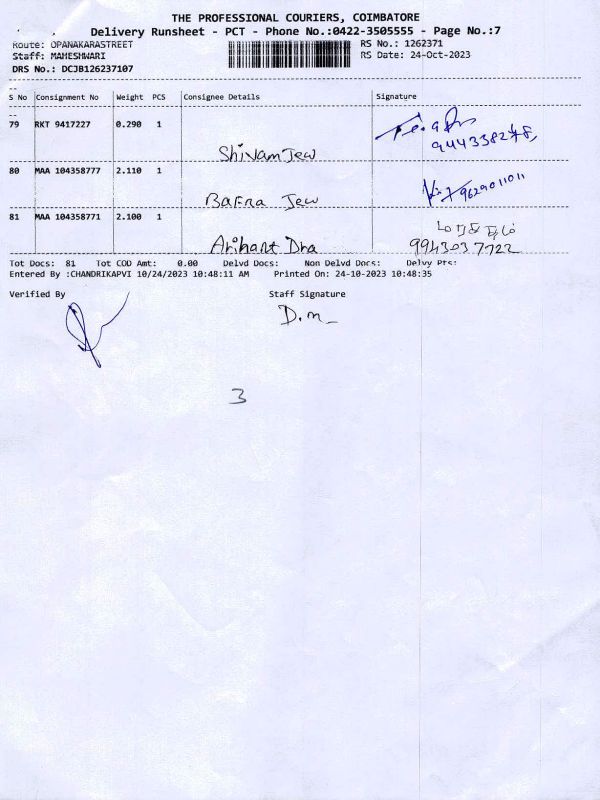 THE PROFESSIONAL COURIERS, COIMBATORE
Delivery Runsheet - PCT - Phone No.:0422-3505555 - Page No.:7
Route: OPANAKARASTREET RS No.: 1262371
Staff: MAHESHWARI RS Date: 24-Oct-2023
DRS No.: DCJB126237107
S No Consignment No Weight PCS Consignee Details Signature
79 RKT 9417227 0.290 1
Shivam Jew
80 MAA 104358777 2.110 1
Bafna Jew 9629011011
81 MAA 104358771 2.100 1
Arihant Dha 9943037722
Tot Docs: 81 Tot COD Amt: 0.00 Delvd Docs: Non Delvd Docs: Delvy Pts:
Entered By :CHANDRIKAPVI 10/24/2023 10:48:11 AM Printed On: 24-10-2023 10:48:35
Verified By Staff Signature
D.m
3